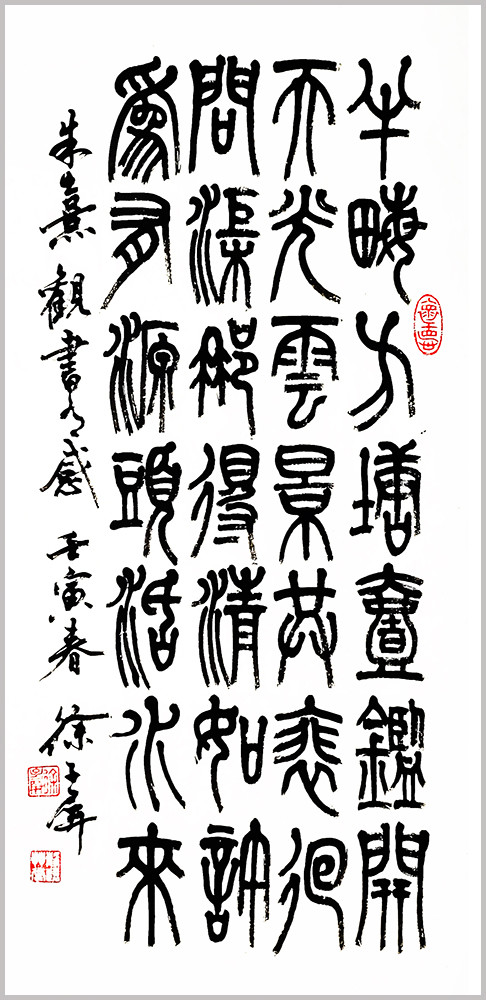 半畮方塘壹鑑開
天光雲景共裵徊
問渠那得清如許
爲有源頭活水來
朱熹觀書有感 壬寅春 徐子